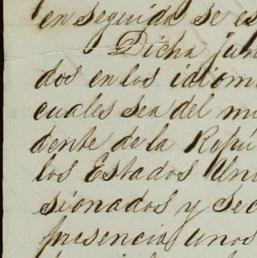 en seguida se es
Dicha jun
dos en los idiom
cuales sea del m
dente de la Repú
los Estados Uni
sionados y Sec
presencia, unos